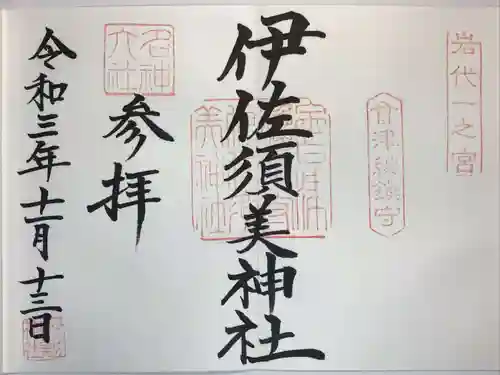 岩代一之宮
会津総鎮守
伊佐須美神社
名神大社
参拝
令和三年十一月十三日